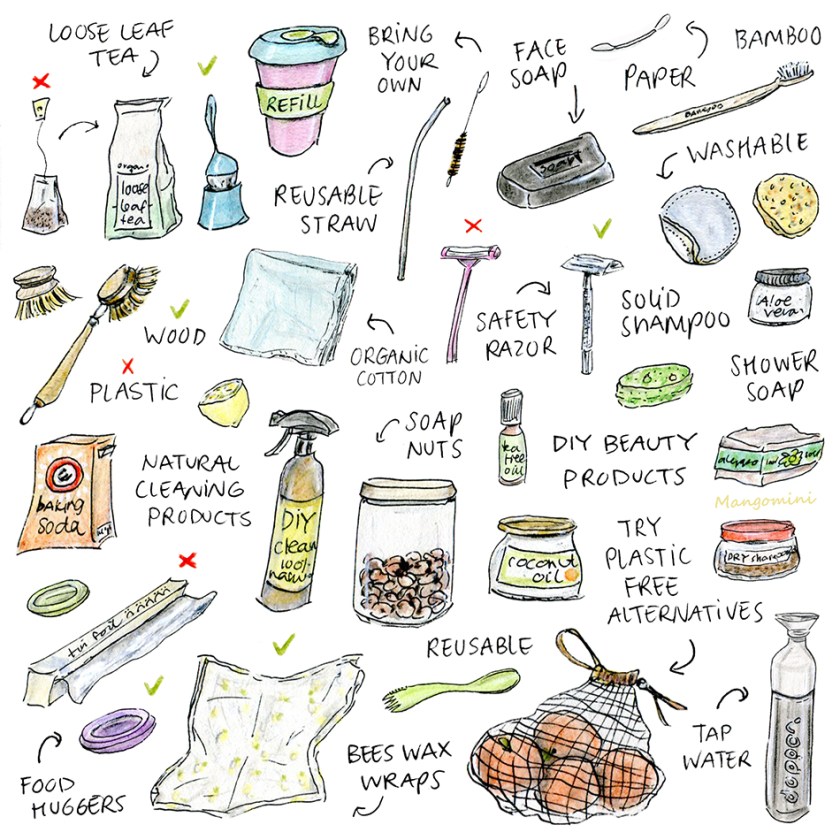 LOOSE LEAF
TEA
organic
loose
leaf
tea
REFILL
BRING
YOUR
OWN
REUSABLE
STRAW
FACE
SOAP
soap
PAPER
BAMBOO
BAMBOO
WASHABLE
WOOD
PLASTIC
ORGANIC
COTTON
SAFETY
RAZOR
SOLID
SHAMPOO
Aloe
vera
SHOWER
SOAP
baking
soda
NATURAL
CLEANING
PRODUCTS
DIY
clean
100%
SOAP
NUTS
tea
tree
oil
DIY BEAUTY
PRODUCTS
Mangomini
coconut
oil
TRY
PLASTIC
FREE
ALTERNATIVES
DRY shampoo
tin foil
FOOD
HUGGERS
BEES WAX
WRAPS
REUSABLE
TAP
WATER
dopper